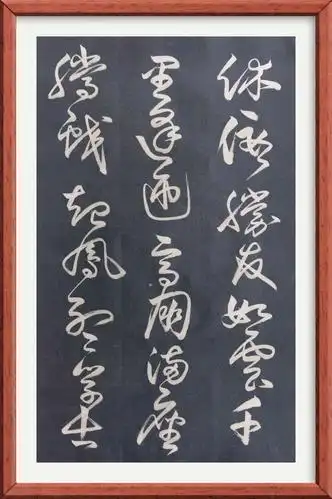 休假勝友如雲千
里逢迎高朋滿座
騰蛟起鳳孟學士